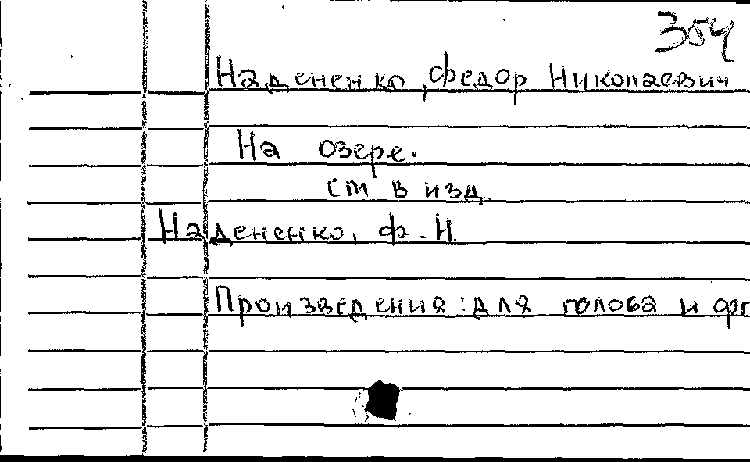 354
Надененко, Федор Николаевич
На озере.
см в изд.
Надененко, Ф. Н.
Произведения: для голоса и фп